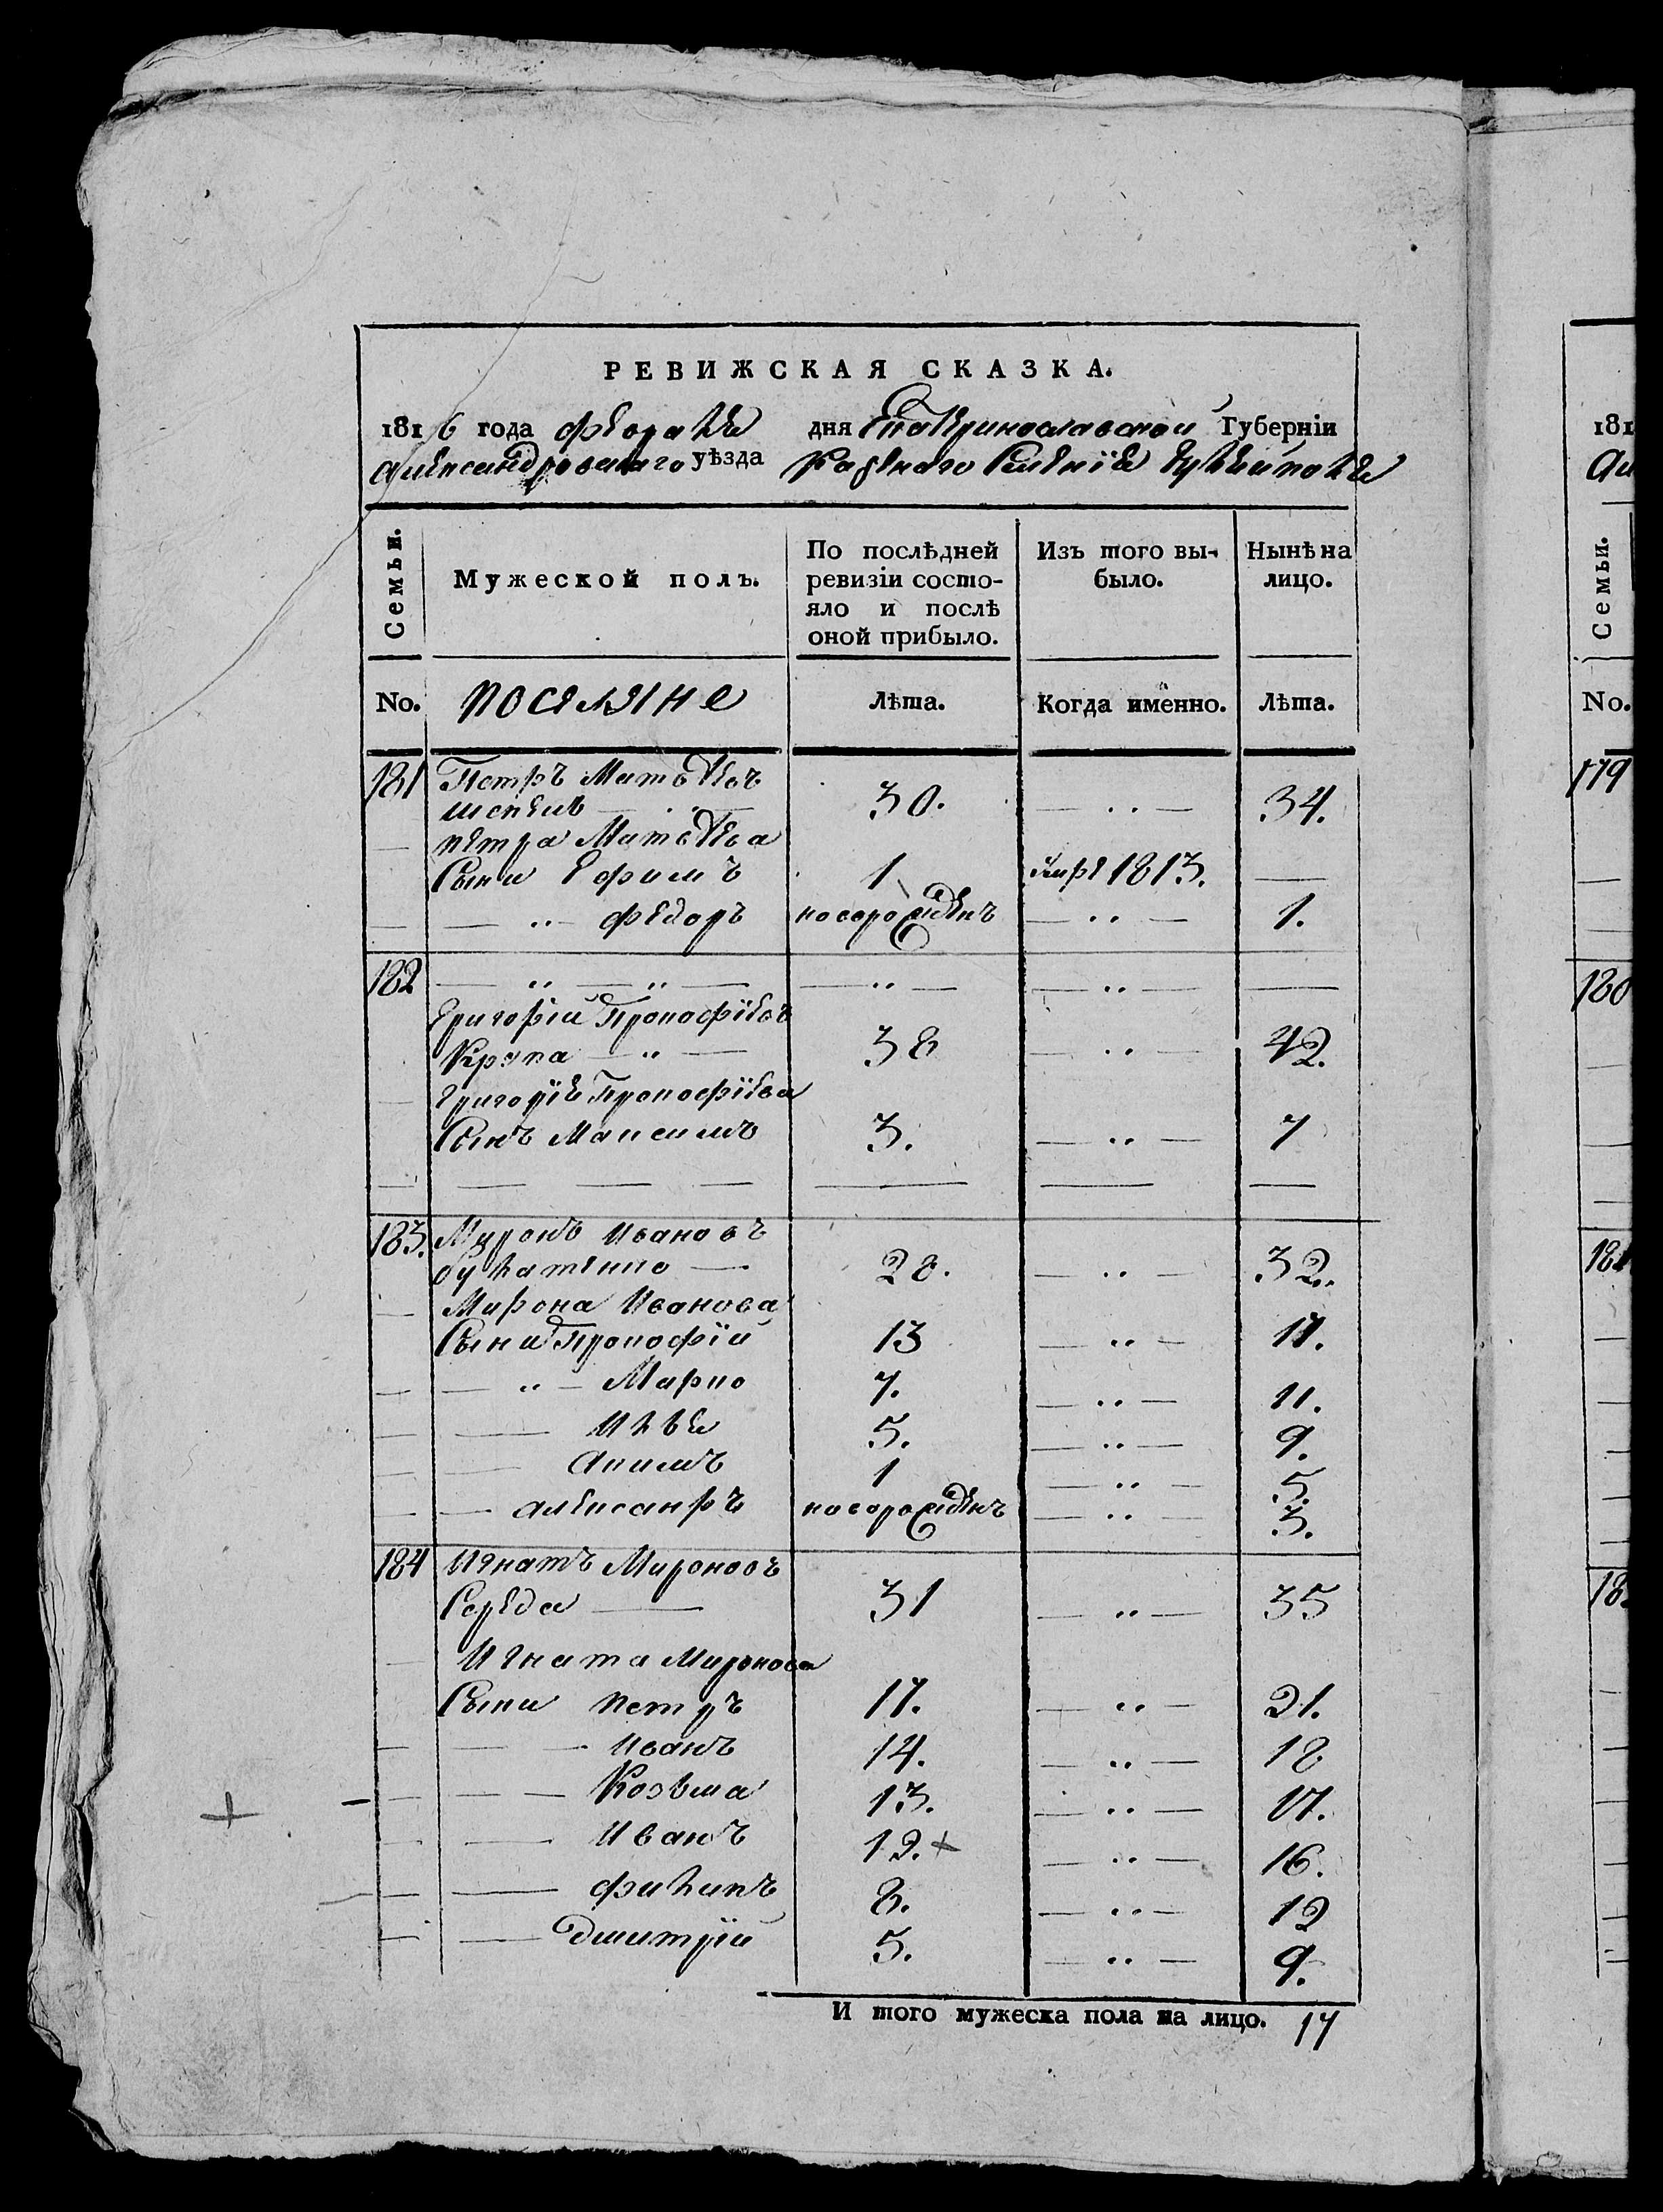 РЕВИЖСКАЯ СКАЗКА.
1816 года февраля дня Екатеринославской Губерніи
Александровскаго уѣзда Казенного Селенія Гуляйполя
Семьи.
Мужеской полъ.
По послѣдней ревизіи состо-
яло и послѣ
оной прибыло.
Изъ того вы-
было.
Нынѣ на
лицо.
No. поселяне Лѣта. Когда имѣнно. Лѣта.
181 Петръ Матвѣевъ
30. 34.
петра Матвѣева
Сыни Ефимъ 1 умре 1813.
Федоръ новорожденъ 1.
182
Григорій Прокофіевъ
Крупа 38 42.
Григорія Прокофіева
Сынъ Максимъ 3. 7
183. Миронъ Ивановъ
28. 32.
Мирона Иванова
Сыни Прокофій 13 17.
Марко 7. 11.
Илья 5. 9.
Акимъ 1 5.
Алексанръ новорожденъ 3.
184 Игнатъ Мироновъ
Середа 31 35
Игната Миронова
Сыни петръ 17. 21.
Иванъ 14. 18
Козьма 13. 17.
Иванъ 12.+ 16.
филипъ 8. 12
Дмитрій 5. 9.
И того мужеска пола на лицо. 17
181
Семьи.
No.
179
180